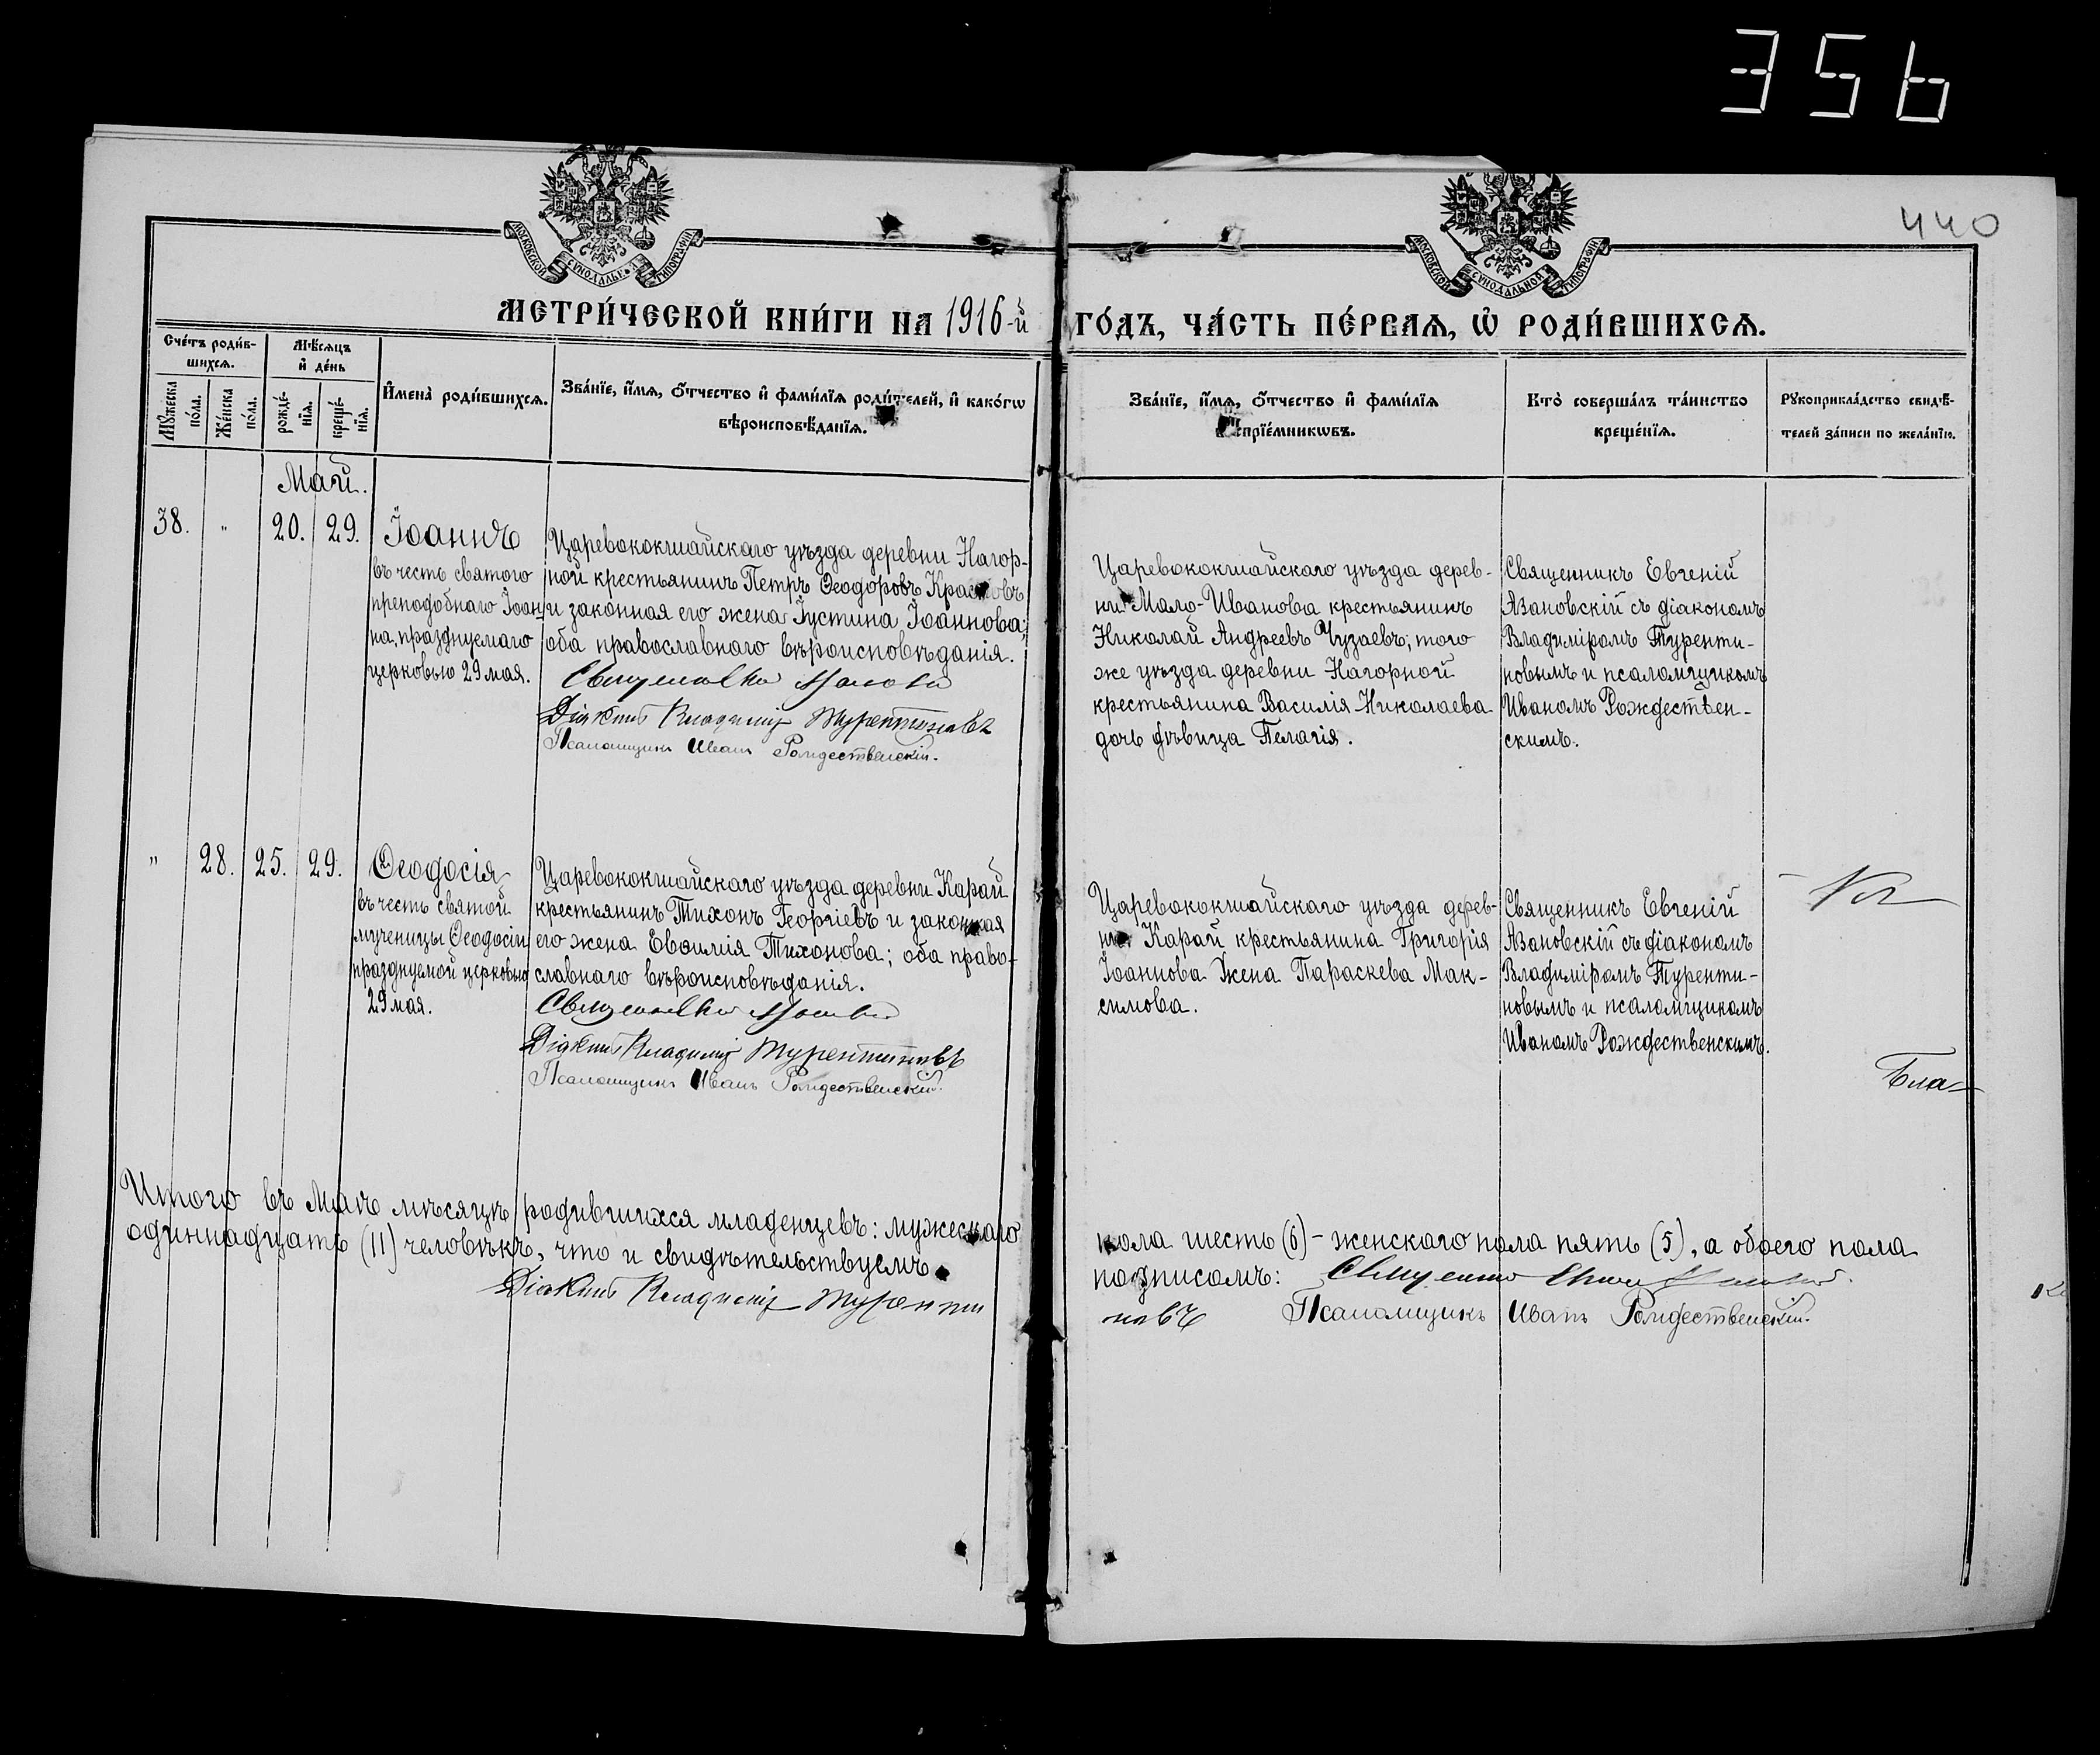 356
440
МОСКОВСКОЙ СУНОДАЛЬНОЙ ТИПОГРАФІИ
МОСКОВСКОЙ СУНОДАЛЬНОЙ ТИПОГРАФІИ
МЕТРИ́ЧЕСКОЙ КНИ́ГИ НА 1916-й ГО́ДЪ, ЧА́СТЬ ПЕ́РВАѦ, Ѽ РОДИ́ВШИХСѦ.
Сче́тъ роди́в-
шихсѧ.
Мꙋ́жеска по́ла.
Же́нска по́ла.
Мѣ́сѧцъ
и҆ де́нь
рожде́-
нїѧ.
креще́-
нїѧ.
И҆мена̀ роди́вшихсѧ.
Зва́нїе, и҆́мѧ, ѻ҆́тчество и҆ фами́лїѧ роди́телей, и҆ како́гѡ
вѣроисповѣ́данїѧ.
Зва́нїе, и҆́мѧ, ѻ҆́тчество и҆ фами́лїѧ
воспрїе́мникѡвъ.
Кто̀ соверша́лъ та́инство
креще́нїѧ.
Рꙋкоприкла́дство свидѣ́-
телей за́писи по жела́нїю.
Май.
38. " 20. 29.
Іоаннъ
въ честь святого
преподобнаго Іоан-
на, празднуемаго
церковью 29 мая.
Царевококшайскаго уѣзда деревни Нагор-
ной крестьянинъ Петръ Ѳеодоровъ
и законная его жена Іустина Іоаннова;
оба православнаго вѣроисповѣданія.
Діаконъ Владиміръ Турентиновъ
Псаломщикъ Иванъ Рождественскій.
Царевококшайскаго уѣзда дерев-
ни Мало-Иванова крестьянинъ
Николай Андреевъ Чузаевъ; того
же уѣзда деревни Нагорной
крестьянина Василія Николаева
дочь дѣвица Пелагія.
Священникъ Евгеній
Азановскій съ діакономъ
Владиміромъ Туренти-
новымъ и псаломщикомъ
Иваномъ Рождествен-
скимъ.
" 28. 25. 29.
Ѳеодосія
въ честь святой
мученицы Ѳеодосіи
празднуемой церковью
29 мая.
Царевококшайскаго уѣзда деревни Карай
крестьянинъ Тихонъ Георгіевъ и законная
его жена Евѳимія Тихонова; оба право-
славнаго вѣроисповѣданія.
Діаконъ Владиміръ Турентиновъ
Псаломщикъ Иванъ Рождественскій.
Царевококшайскаго уѣзда дерев-
ни Карай крестьянина Григорія
Іоаннова жена Параскева Мак-
симова.
Священникъ Евгеній
Азановскій съ діакономъ
Владиміромъ Туренти-
новымъ и псаломщикомъ
Иваномъ Рождественскимъ.
Бла-
Итого въ Маѣ мѣсяцѣ родившихся младенцевъ: мужескаго пола шесть (6) - женскаго пола пять (5), а обоего пола
одиннадцать (11) человѣкъ, что и свидѣтельствуемъ подписомъ: Священникъ
Діаконъ Владиміръ Турентиновъ Псаломщикъ Иванъ Рождественскій.